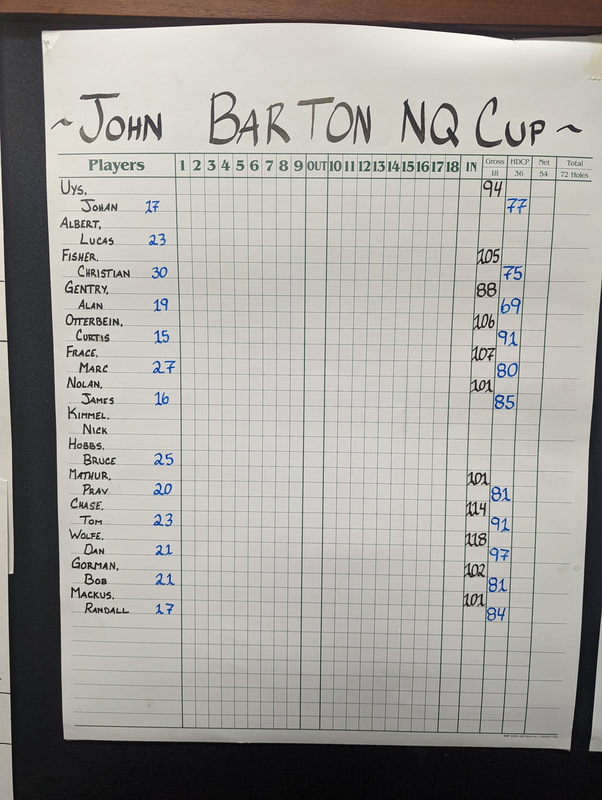 ~ JOHN BARTON NQ CUP ~
Players 1 2 3 4 5 6 7 8 9 OUT 10 11 12 13 14 15 16 17 18 IN Gross HDCP Net Total
18 36 54 72 Holes
UYS, 94
JOHAN 17 77
ALBERT,
LUCAS 23
FISHER. 105
CHRISTIAN 30 75
GENTRY, 88
ALAN 19 69
OTTERBEIN, 106
CURTIS 15 91
FRACE, 107
MARC 27 80
NOLAN, 101
JAMES 16 85
KIMMEL,
NICK
HOBBS.
BRUCE 25
MATHUR, 101
PRAV 20 81
CHASE. 114
TOM 23 91
WOLFE, 118
DAN 21 97
GORMAN, 102
BOB 21 81
MACKUS. 101
RANDALL 17 84